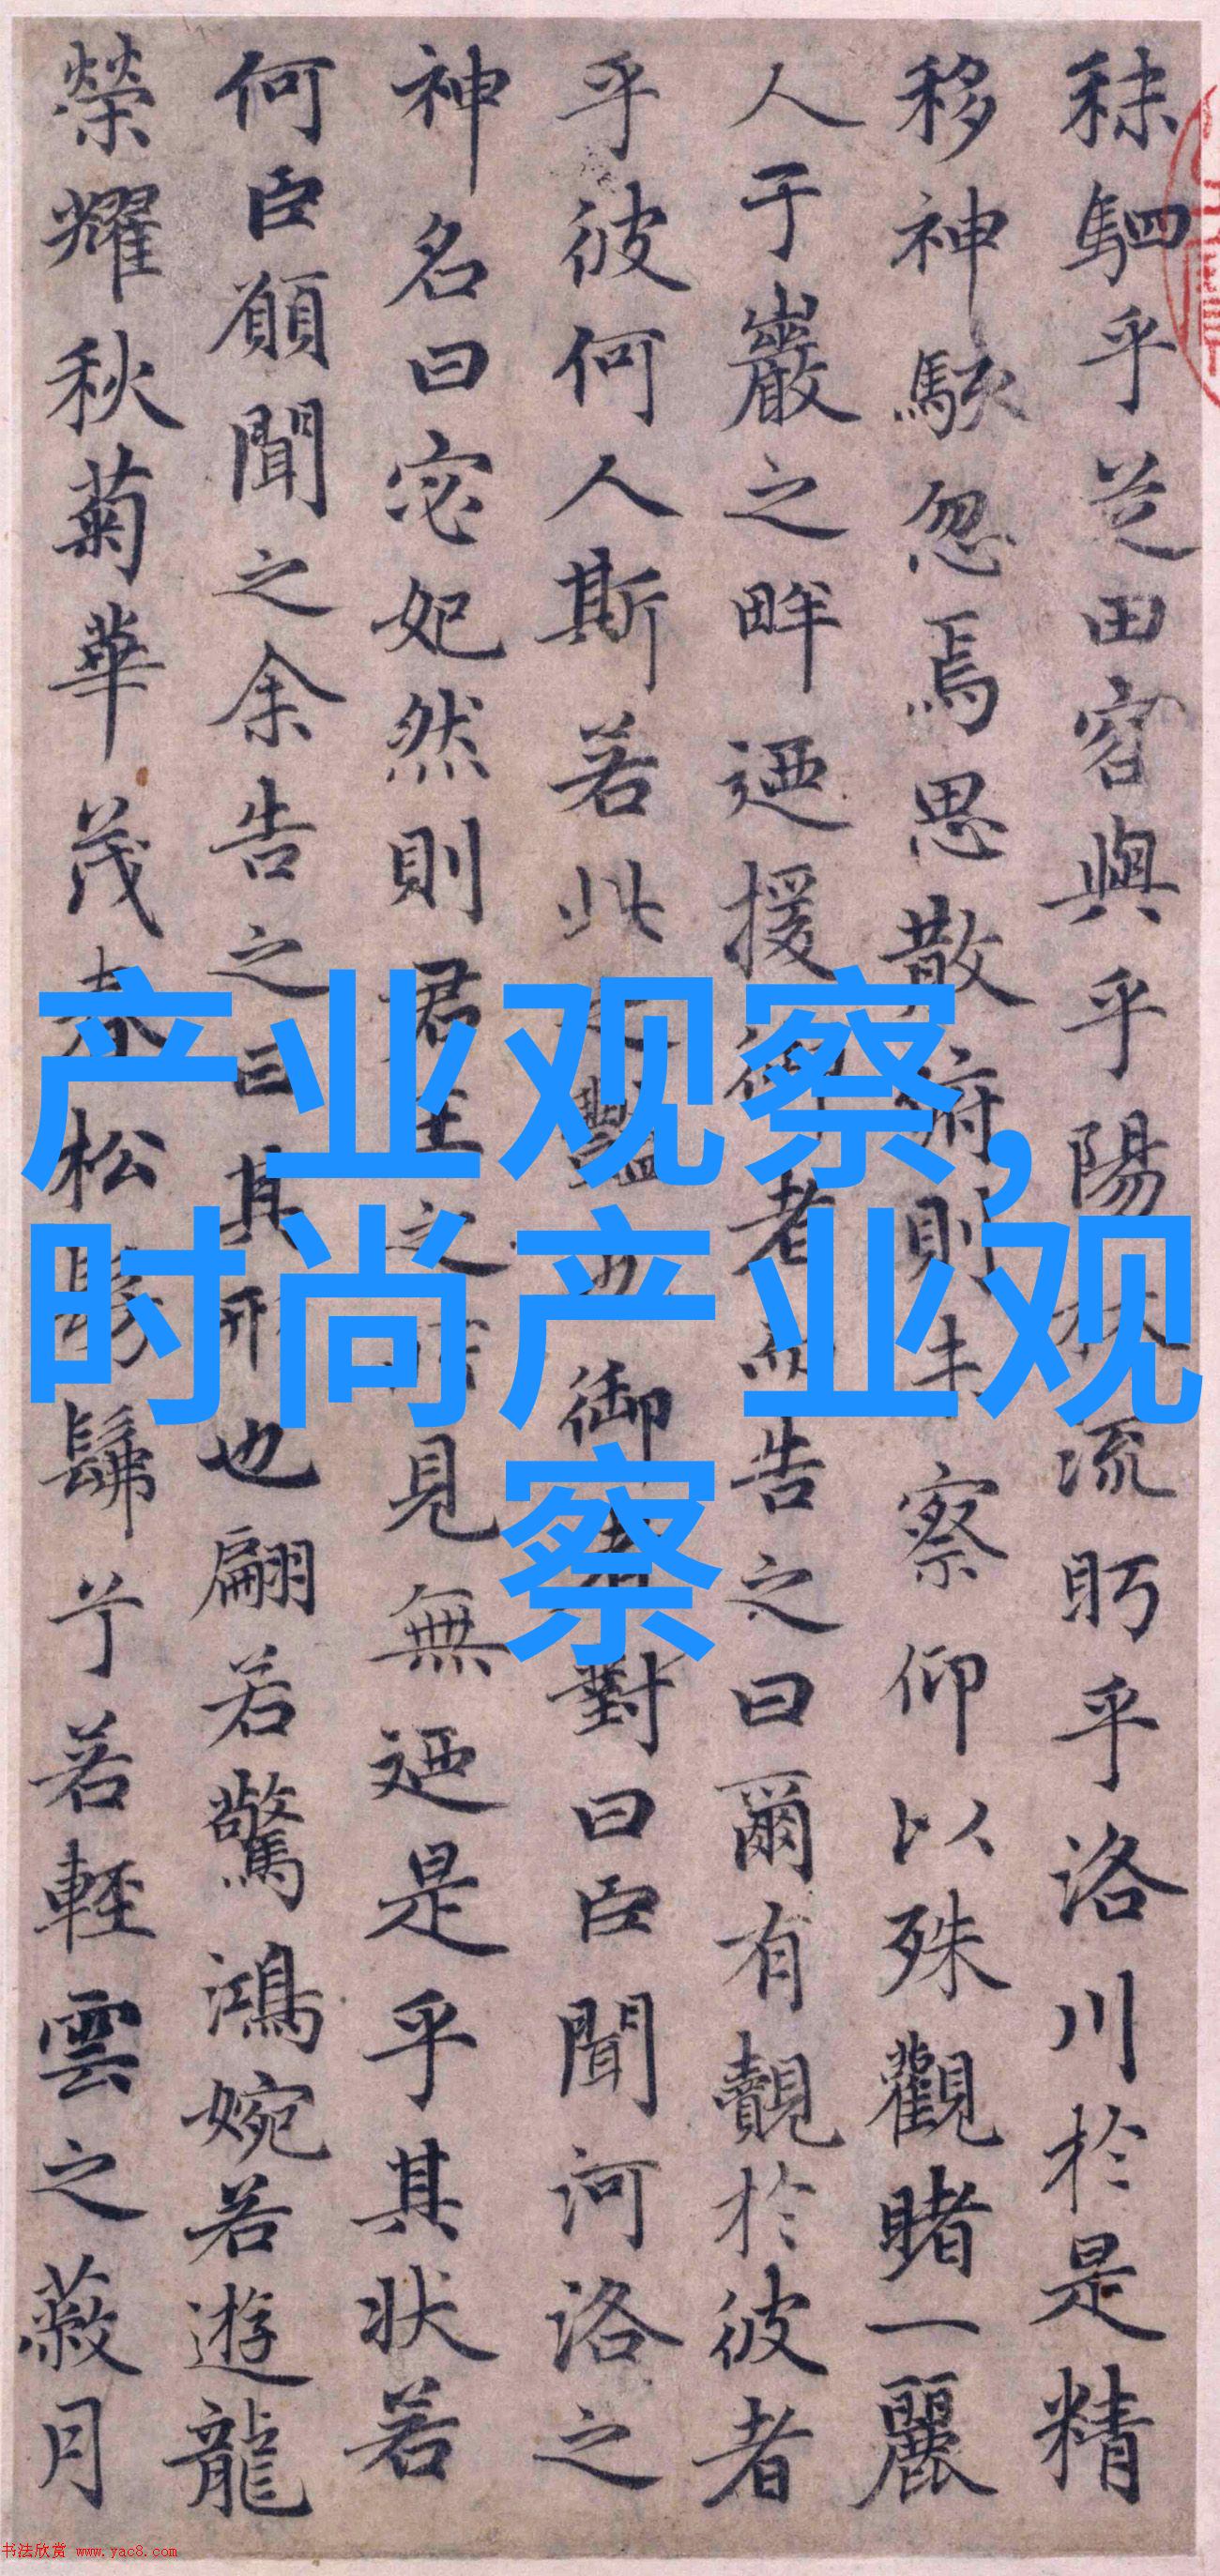 秣駟乎芝田容與乎陽林流眄乎洛川於是精
移神駭忽焉思散俯則未察仰以殊觀睹一麗
人于巖之畔迺援御者而告之曰爾有覿於彼者
乎彼何人斯若此之豔也御者對曰臣聞河洛之
神名曰宓妃然則君王之所見無迺是乎其狀若
何臣願聞之余告之曰其形也翩若驚鴻婉若遊龍
榮耀秋菊華茂春松髣髴兮若輕雲之蔽月
产业观察,
时尚产业观
察
书法欣赏 www.yac8.com